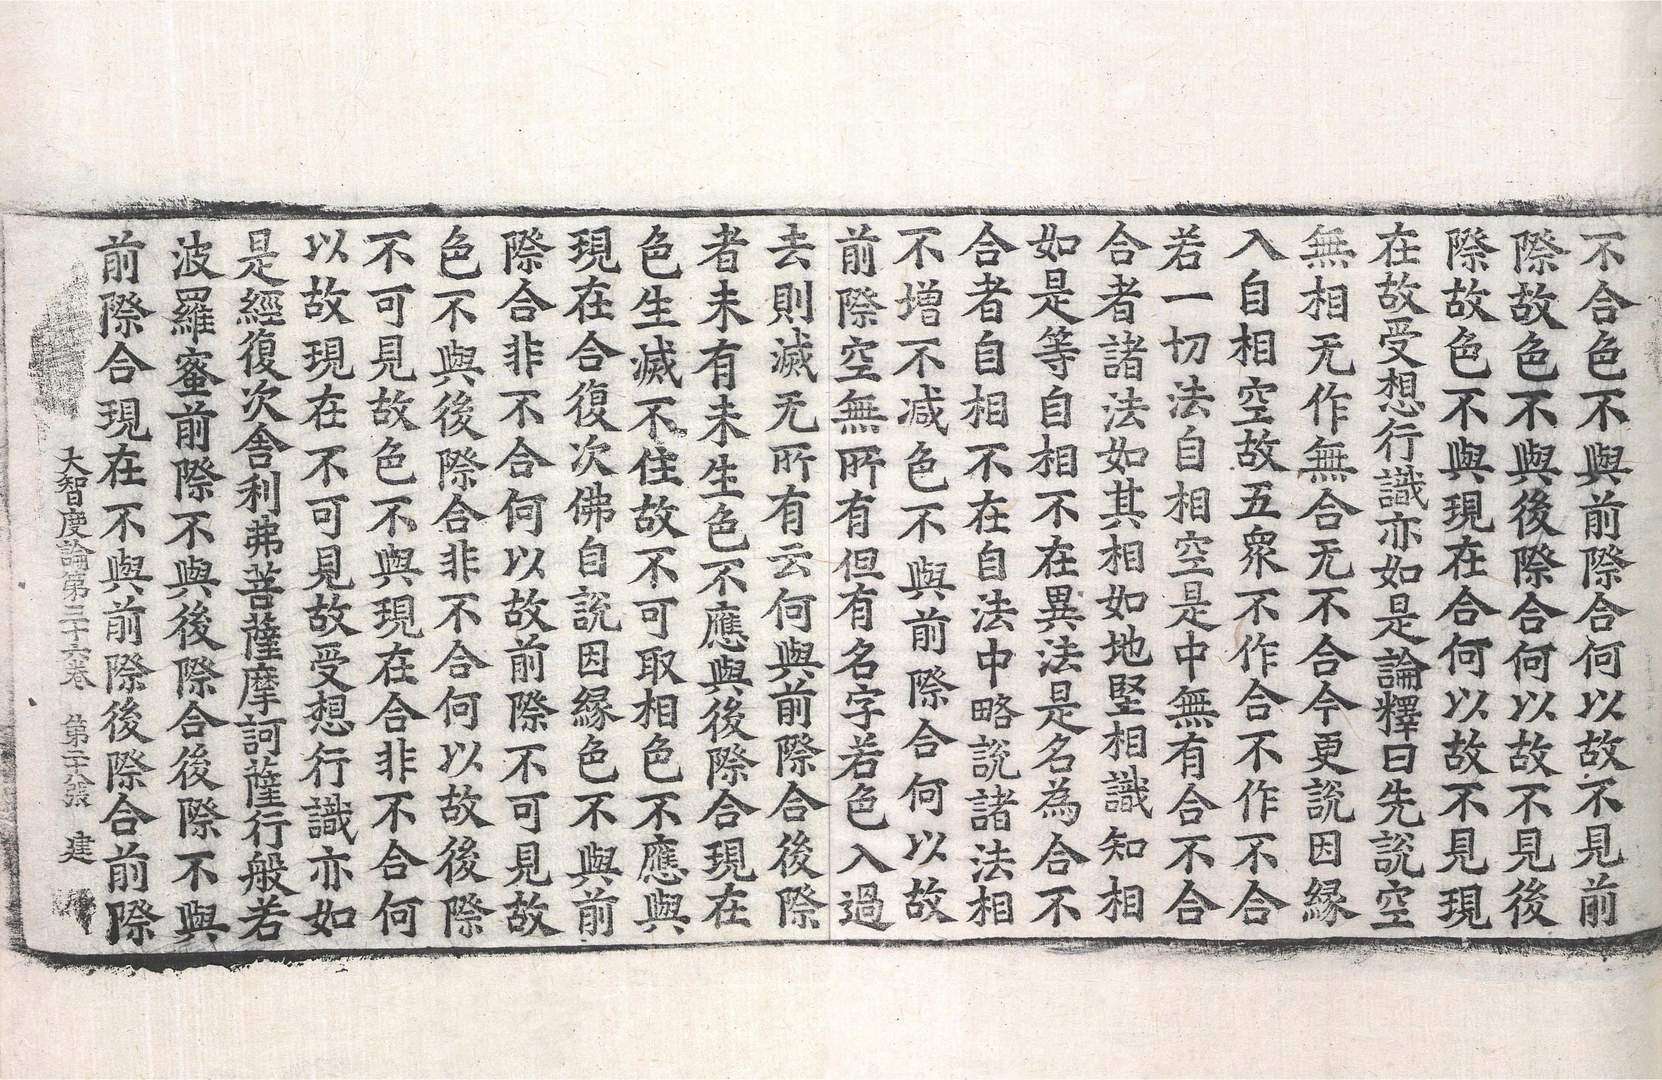 不合色不與前際合何以故不見前
際故色不與後際合何以故不見後
際故色不與現在合何以故不見現
在故受想行識亦如是論釋曰先說空
無相无作無合无不合今更說因縁
入自相空故五衆不作合不作不合
若一切法自相空是中無有合不合
合者諸法如其相如地堅相識知相
如是等自相不在異法是名為合不
合者自相不在自法中略說諸法相
不增不减色不與前際合何以故
前際空無所有但有名字若色入過
去則滅无所有云何與前際合後際
者未有未生色不應與後際合現在
色生滅不住故不可取相色不應與
現在合復次佛自說因縁色不與前
際合非不合何以故前際不可見故
色不與後際合非不合何以故後際
不可見故色不與現在合非不合何
以故現在不可見故受想行識亦如
是經復次舍利弗菩薩摩訶薩行般若
波羅蜜前際不與後際合後際不與
前際合現在不與前際後際合前際
大智度論第三十六卷 第二十八張 建